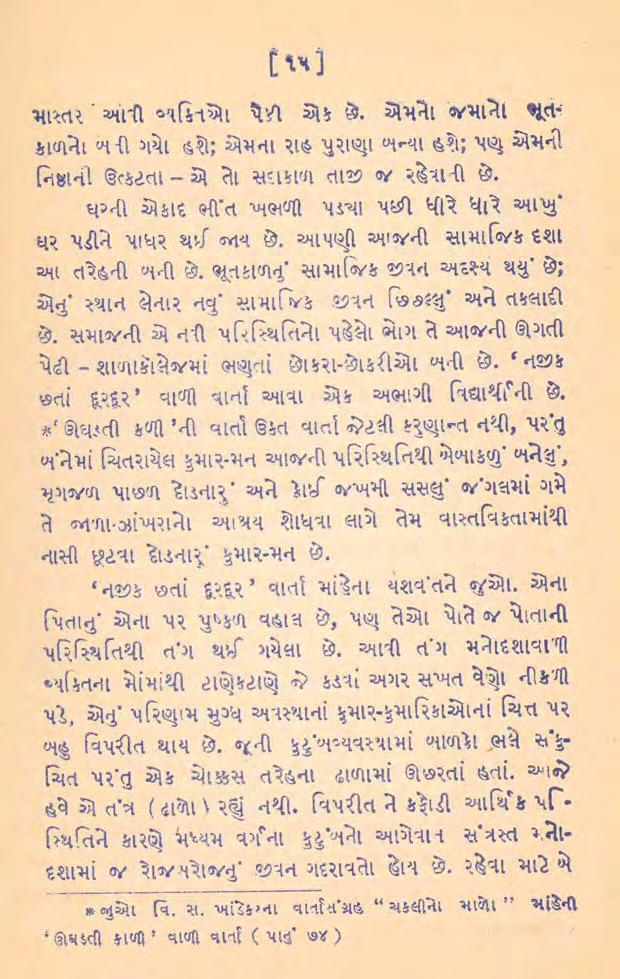 [ ૧૫ ]
માસ્તર આવી વ્યક્તિઓ પૈકી એક છે. એમનો જમાનો ભૂત-
કાળનો બની ગયો હશે; એમના રાહ પુરાણા બન્યા હશે; પણ એમની
નિષ્ઠાની ઉત્કટતા – એ તો સદાકાળ તાજી જ રહેવાની છે.
ઘરની એકાદ ભીંત ખભળી પડ્યા પછી ધીરે ધીરે આખું
ઘર પડીને પાધર થઈ જાય છે. આપણી આજની સામાજિક દશા
આ તરેહની બની છે. ભૂતકાળનું સામાજિક જીવન અદશ્ય થયું છે;
એનું સ્થાન લેનાર નવું સામાજિક જીવન છિછલ્લું અને તકલાદી
છે. સમાજની એ નવી પરિસ્થિતિનો પહેલો ભોગ તે આજની ઊગતી
પેઢી – શાળાકૉલેજમાં ભણતાં છોકરા-છોકરીઓ બની છે. ‘ નજીક
છતાં દૂરદૂર ’ વાળી વાર્તા આવા એક અભાગી વિદ્યાર્થીની છે.
*‘ ઊઘડતી કળી ’ની વાર્તા ઉક્ત વાર્તા જેટલી કરુણાન્ત નથી, પરંતુ
બંનેમાં ચિતરાયેલ કુમાર-મન આજની પરિસ્થિતિથી બેબાકળું બનેલું,
મૃગજળ પાછળ દોડનારું અને કોઈ જખમી સસલું જંગલમાં ગમે
તે જાળા-ઝાંખરાનો આશ્રય શોધવા લાગે તેમ વાસ્તવિકતામાંથી
નાસી છૂટવા દોડનારું કુમાર-મન છે.
‘ નજીક છતાં દૂરદૂર ’ વાર્તા માંહેના યશવંતને જુઓ. એના
પિતાનું એના પર પુષ્કળ વહાલ છે, પણ તેઓ પોતે જ પોતાની
પરિસ્થિતિથી તંગ થઈ ગયેલા છે. આવી તંગ મનોદશાવાળી
વ્યક્તિના મોંમાંથી ટાણેકટાણે જે કડવાં અગર સખત વેણો નીકળી
પડે, એનું પરિણામ મુગ્ધ અવસ્થાનાં કુમાર-કુમારિકાઓનાં ચિત્ત પર
બહુ વિપરીત થાય છે. જૂની કુટુંબવ્યવસ્થામાં બાળકો ભલે સંકુ-
ચિત પરંતુ એક ચોક્કસ તરેહના ઢાળામાં ઊછરતાં હતાં. આજે
હવે એ તંત્ર ( ઢાળો ) રહ્યું નથી. વિપરીત ને કફોડી આર્થિક પરિ-
સ્થિતિને કારણે મધ્યમ વર્ગના કુટુંબનો આગેવાન સંત્રસ્ત મનો-
દશામાં જ રોજબરોજનું જીવન ગદરાવતો હોય છે. રહેવા માટે બે
* જુઓ વિ. સ. ખાંડેકરના વાર્તાસંગ્રહ “ ચકલીનો માળો ” માંહેની
‘ ઊઘડતી કાળી ’ વાળી વાર્તા ( પાનું ૭૪ )